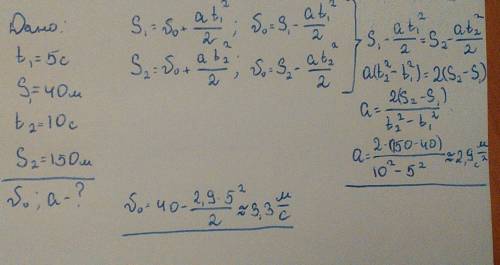 Дано:
t₁=5с
S₁=40м
t₂=10с
S₂=150м
v₀; a-?
S₁=v₀+at₁²/2; v₀=S₁-at₁²/2
S₂=v₀+at₂²/2; v₀=S₂-at₂²/2
S₁-at₁²/2=S₂-at₂²/2
a(t₂²-t₁²)=2(S₂-S₁)
a=2(S₂-S₁)/t₂²-t₁²
a=2·(150-40)/10²-5²≈2,9 м/с²
v₀=40-2,9·5²/2≈3,3 м/с